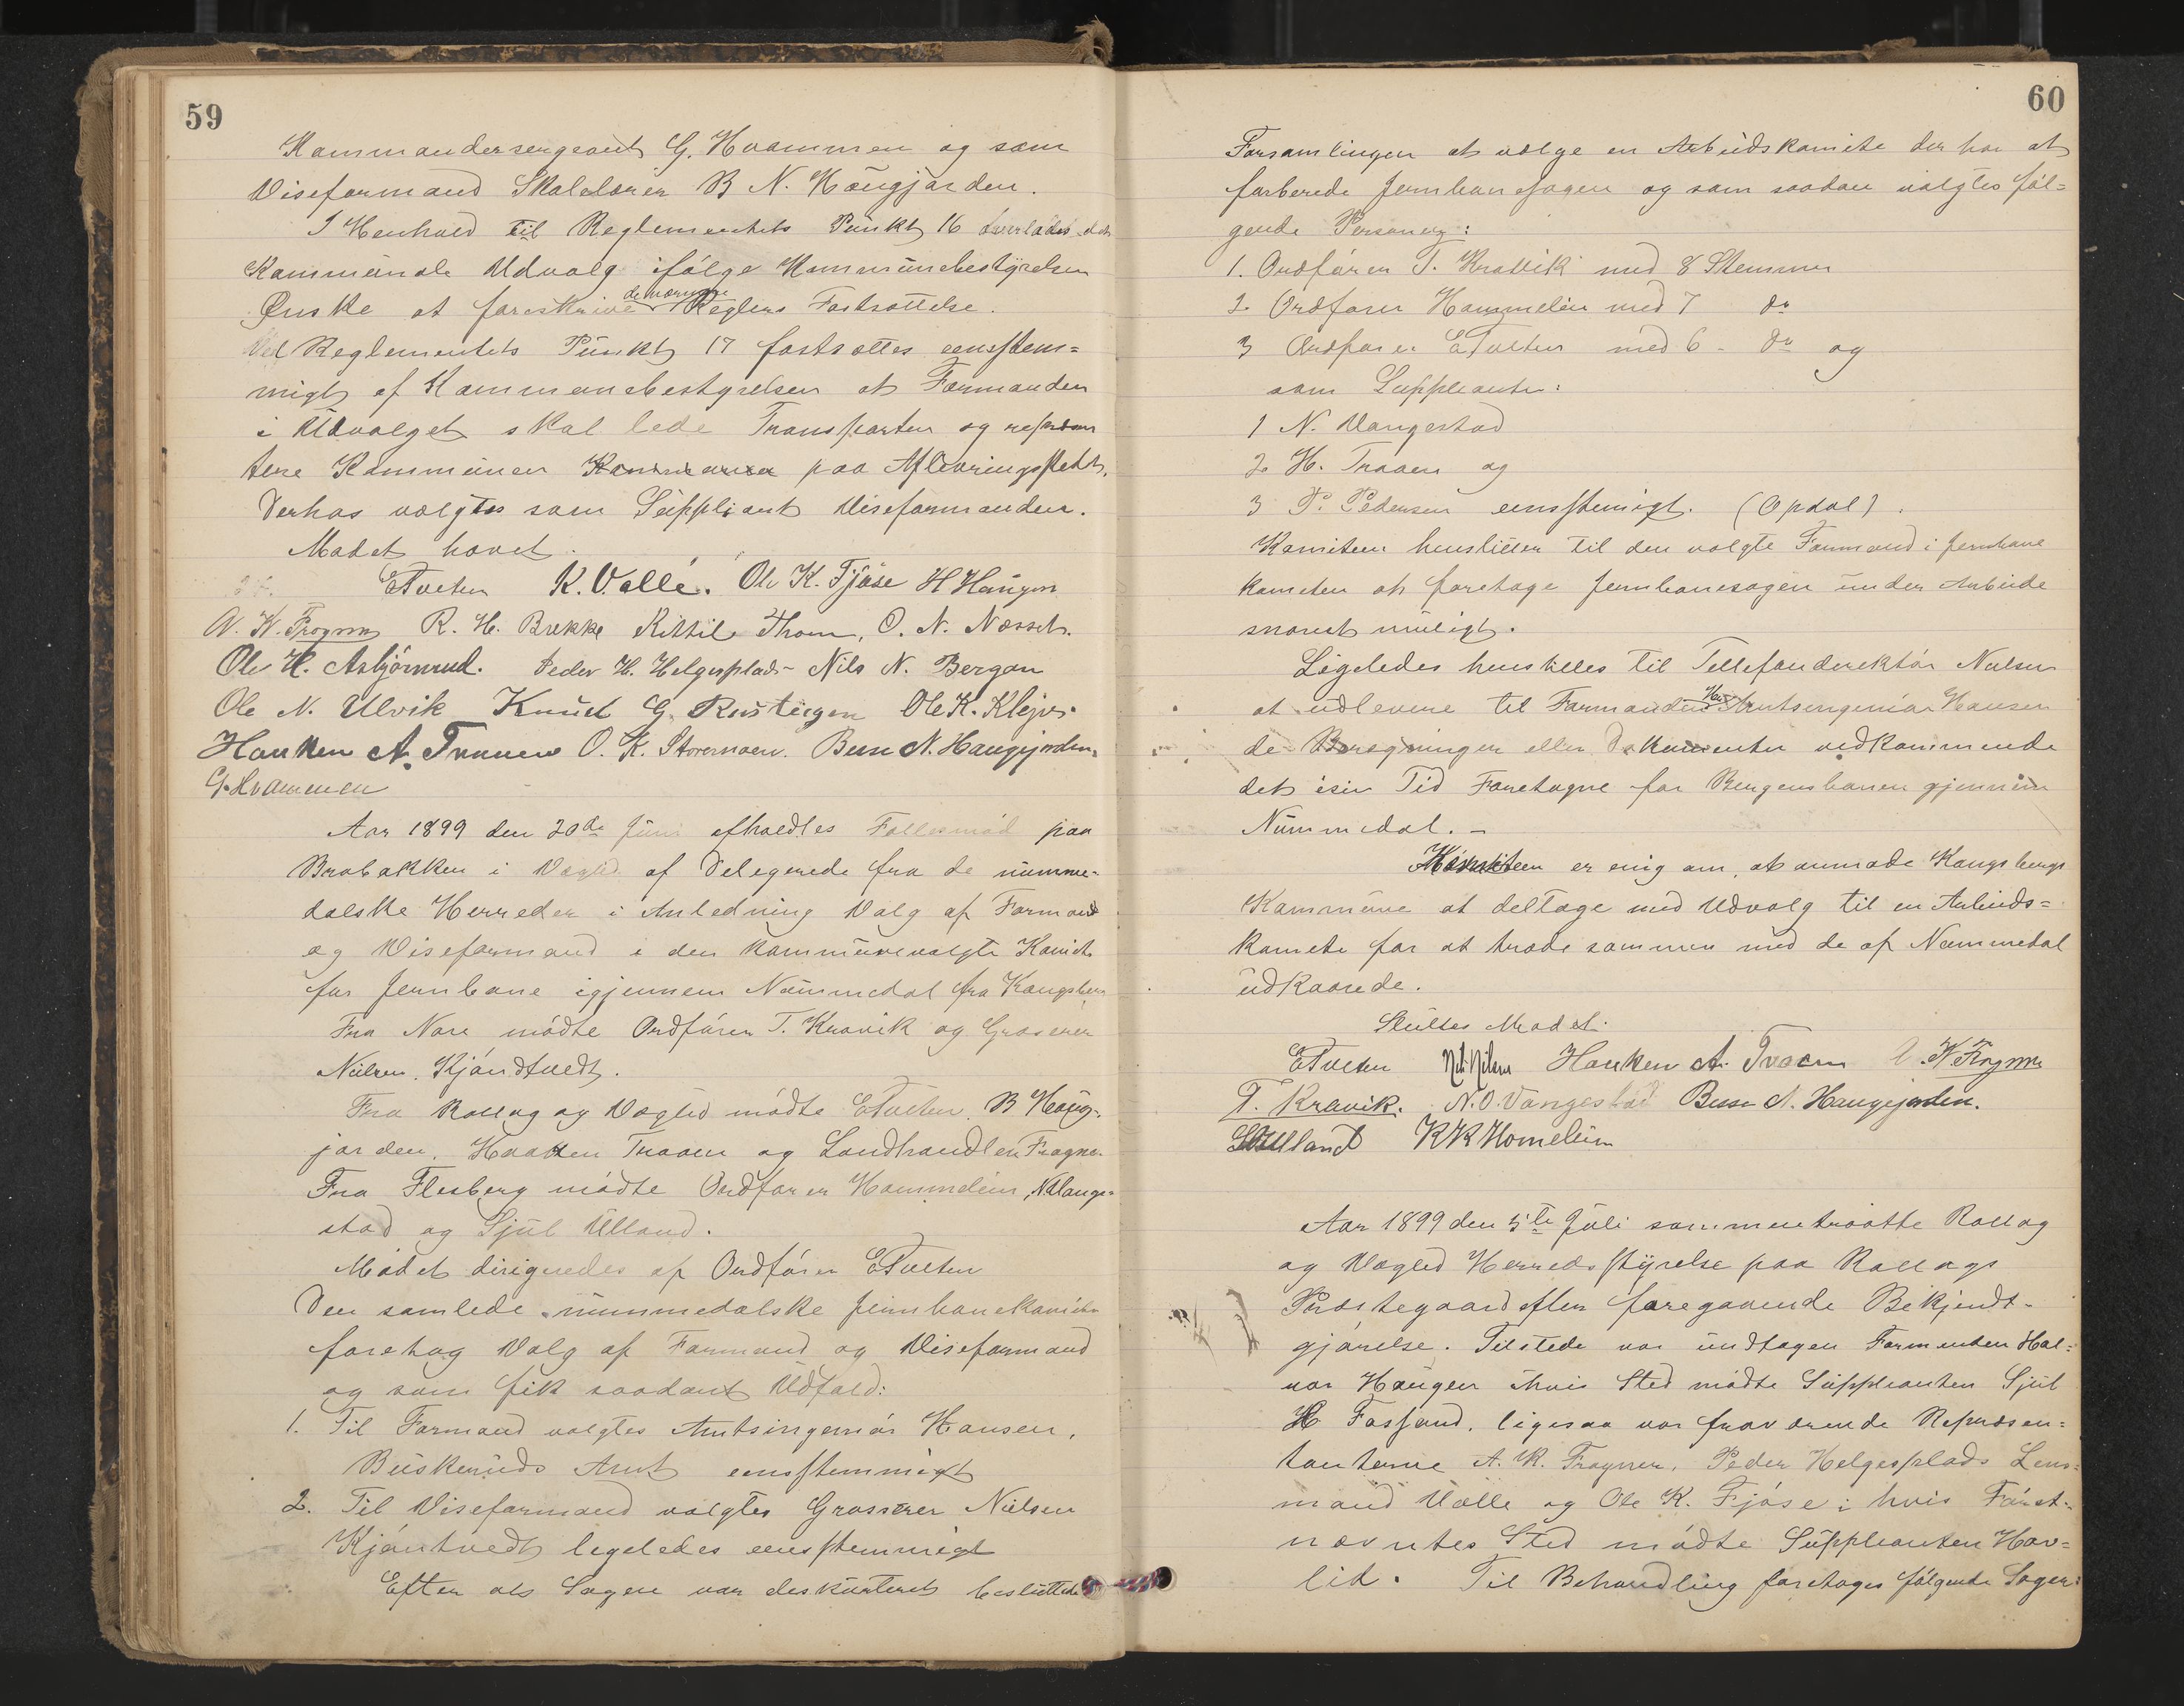 59
Kommandersergeant G. Hvammen og som
Viseformand Skolelærer B N. Haugjorden.
I Henhold til Reglementets Punkt 16 overlades det
Kommunale Udvalg ifølge Kommunebestyrelsen
Ønske at foreskrive de nærmere Reglers Fastsættelse.
Ved Reglementets Punkt 17 fastsættes eenstem=
migt af Kommunebestyrelsen at Formanden
i Udvalget skal lede Transporten og repræsen
tere Kommunen paa Afleveringsstedet.
Derhos valgtes som Suppliant Viseformanden.
Mødet hævet.
ETveten K. Vallé. Ole K. Fjøse H Haugen
A. K. Frogner R. H. Brekke Kittil Thoen, O. N. Næsset.
Ole H. Asbjørnrud. Peder H. Helgesplads Nils N. Bergan
Ole N. Ulvik Knud G. Rustugen Ole K. Klejve.
Haaken A. Traaen O. K. Stærnæs. Bern N. Haugjorden.
G. Hvammen
Aar 1899 den 20de Juni afholdtes Fællesmød paa
Brobakken i Vægli af Delegerede fra de numme=
dalske Herreder i Anledning Valg af Formand
og Viseformand i den kommunevalgte Komite
for Jernbane igjennem Nummedal fra Kongsberg
Fra Nore mødte Ordfører T. Kravik og Grosserer
Nielsen, Kjøndtvedt.
Fra Rollag og Væglid mødte ETveten, B Haug-
jorden, Haaken Traaen og Landhandler Frogner.
Fra Flesberg mødte Ordfører Hammelein, N Vange=
stad og Sjul Ulland.
Mødet dirigeredes af Ordfører ETveten
Den samlede nummedalske Jernbanekomite
foretog Valg af Formand og Viseformand
og som fik saadant Udfald:
1. Til Formand valgtes Amtsingeniør Hansen,
Buskeruds Amt eenstemmigt
2. Til Viseformand valgtes Grosserer Nielsen
Kjøntvedt legeledes eenstemmigt
Efter at Sagen var deskuteret besluttede
60
Forsamlingen at vælge en Arbeidskomite der har at
forberede Jernbanesagen og som saadan valgtes føl=
gende Personer:
1. Ordfører T. Kravik med 8 Stemmer
2. Ordfører Hammelein med 7 do
3 Ordfører ETveten med 6 - do og
som Suppleanter:
1 N. Vangestad
2 H. Traaen og
3 P. Pedersen eenstemigt. (Opdal).
Komiteen henstiller til den valgte Formand i Jernbane
komiteen at foretage Jernbanesagen under Arbeide
snarest muligt.
Ligeledes henstilles til Tellefonderektør Nielsen
at udlevere til Formanden Hr Amtsengeniør Hansen
de Beregninger eller Dokumenter vedkommende
det isin Tid Foretagne for Bergensbanen gjennem
Nummedal. -
Komiteen er enig om, at anmode Kongsbergs
Kommune at deltage med Udvalg til en Arbeids=
komite for at træde sammen med de af Nummedal
udkaarede.
Sluttet Mødet.
ETveten Nils Nilsen Haaken A. Traaen A. K. Frogner
T. Kravik. N. O. Vangestad Bern N. Haugjorden.
SOUlland KKHomelein
Aar 1899 den 5te Juli sammentraadte Rollag
og Væglid Herredsstyrelse paa Rollags
Præstegaard efter foregaaende Bekjendt-
gjørelse. Tilstede var undtagen Formanden Hal=
vor Haugen ihvis Sted mødte Suppleanten Sjul
H Fossand, ligesaa var fraværende Repræsen=
tanterne A. K. Frogner, Peder Helgesplads Lens=
mand Valle og Ole K. Fjøse i hvis Først-
nævntes Sted mødte Suppleanten Hav=
lid. Til Behandling foretoges følgende Sager: